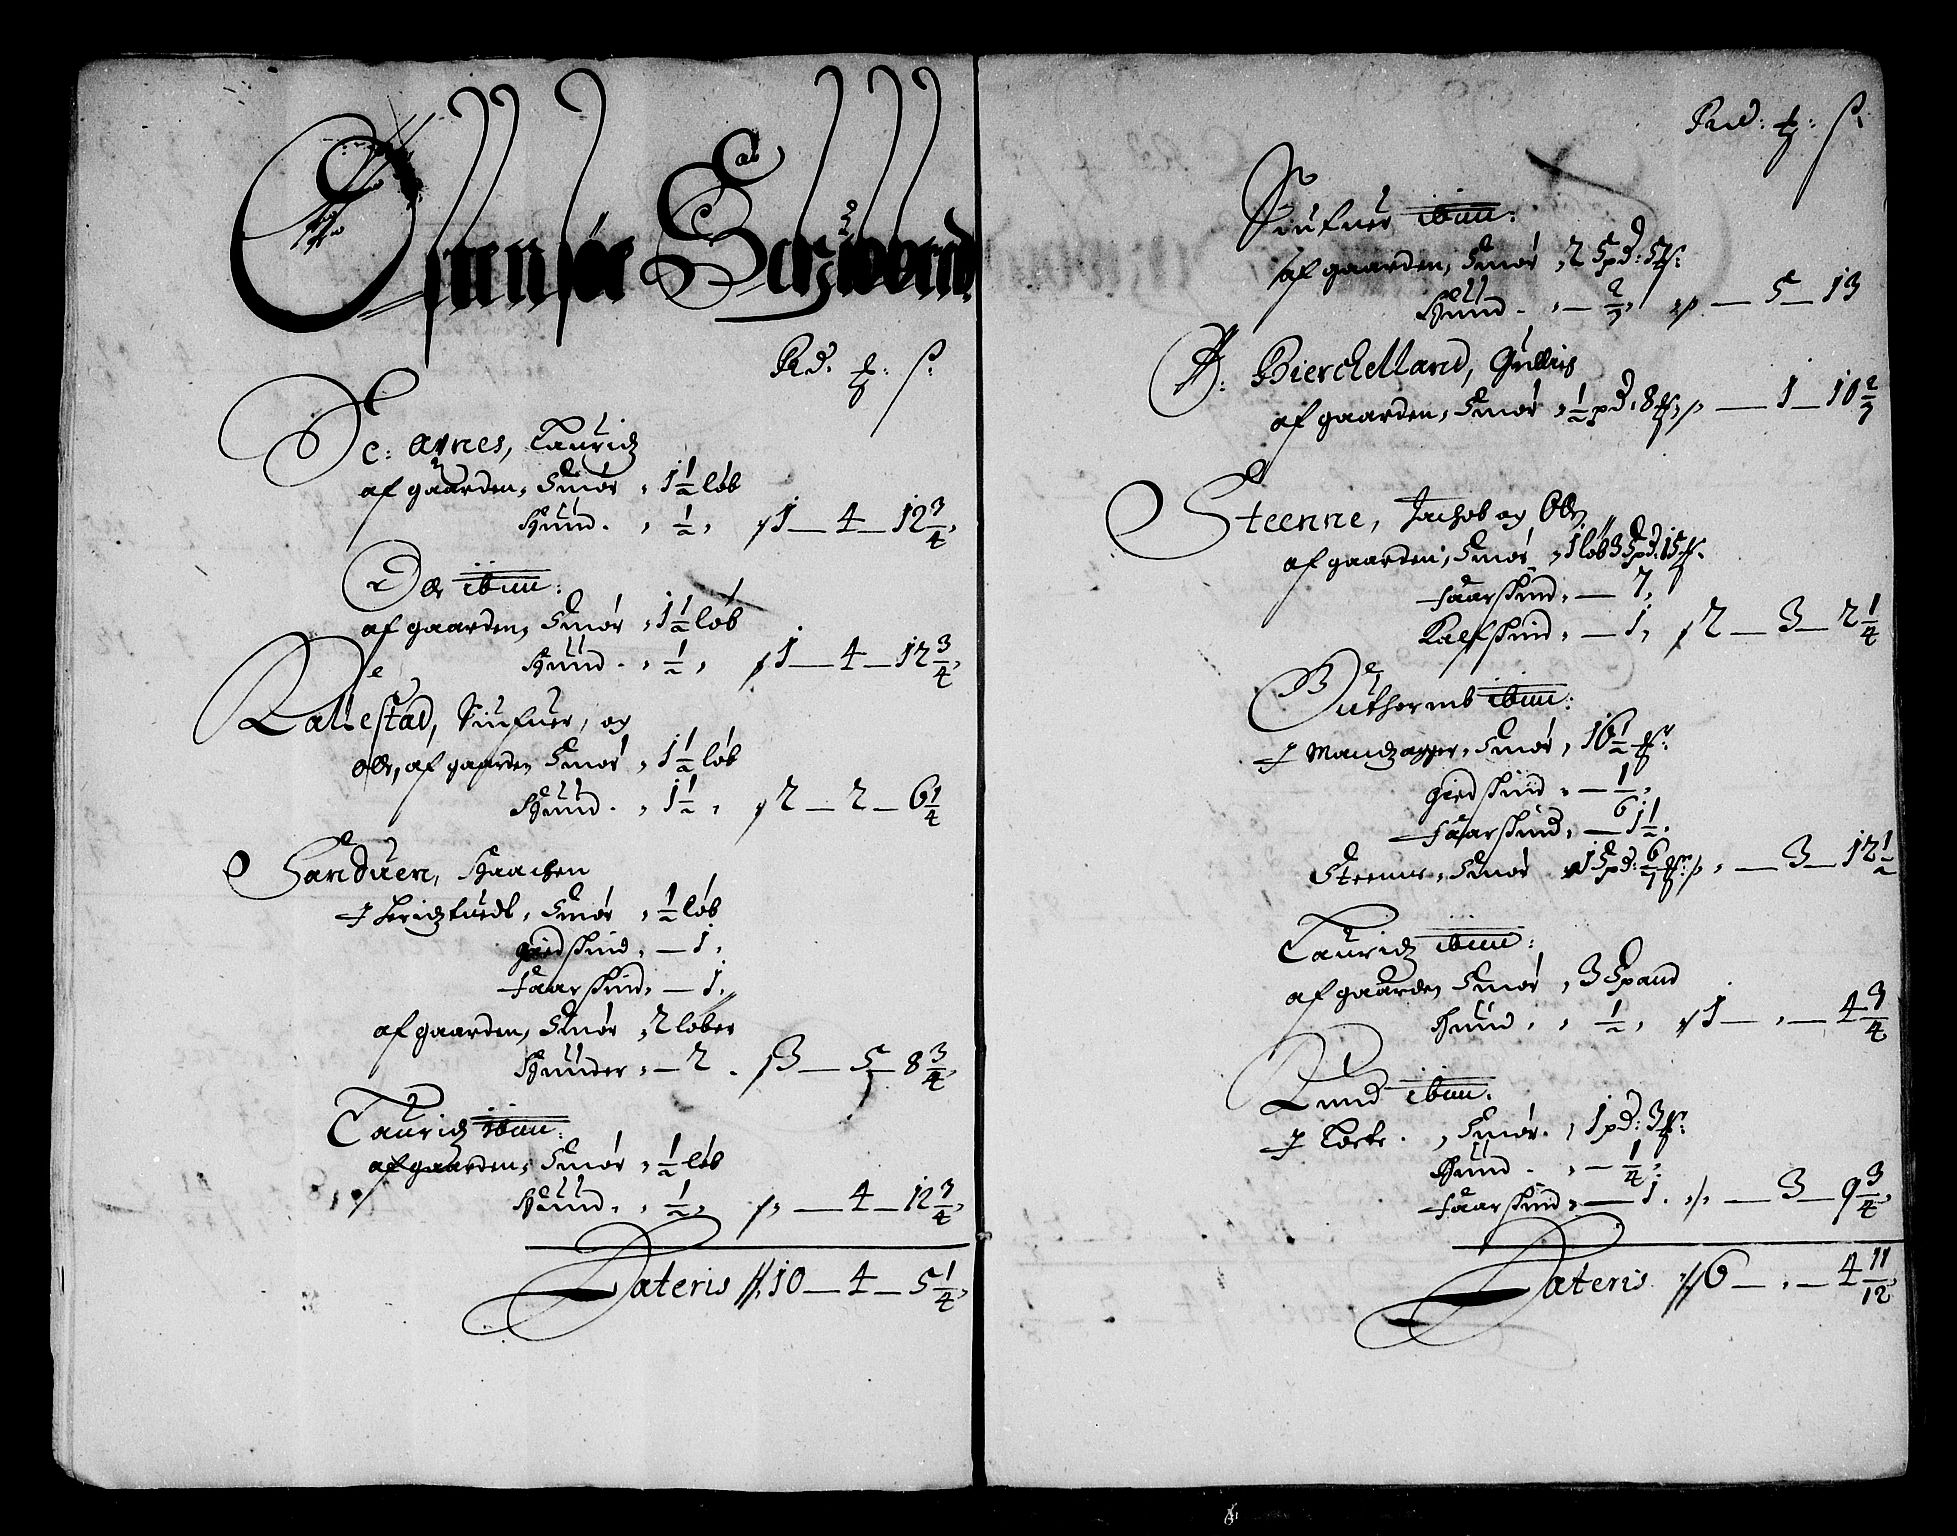 Ostensøe Schibbrede
Rd. ꝶ. ß.
Sc: Agnes, Lauridz
af gaarden, Smør, 1 1/2 løb
Huud. , 1/2 , 1 — 4 — 12 3/4
Ole ibm:
af gaarden, Smør, 1 1/2 løb
Huud. , 1/2 , 1 — 4 — 12 3/4
Rallestad, Siufuer, og
Ole, af gaarden Smør, 1 1/2 løb
Huud. , 1 1/2 , 2 — 2 — 6 1/4
Sanduen, Haachen
Smør, 1/2 løb
giedskind, — 1,
faarskind, — 1,
af gaarden, Smør, 2 løber
Huuder, — 2 . 3 — 5 — 8 3/4
Lauridz ibm:
af gaarden, Smør, 1/2 løb
Huud. , 1/2 , — 4 — 12 3/4
Lateris 10 — 4 — 5 1/4
Rd: ꝶ: ß.
Siufuer ibm:
af gaarden, Smør, 2 Spd: 5
Huud. , — 2/7 , — 5 — 13
A: Bierchelland, Gullich
af gaarden, Smør, 1/2 pd, 8 — 1 — 10 2/7
Steenne, Jachob og Ole,
af gaarden, Smør, 1 løb 3 Spd: 15
faarskind, — 7,
Kalfskind, — 1, 2 — 3 — 2 1/4
Guthormb ibm:
J Mandzager, Smør, 16 1/2
giedskind, — 1/6,
faarskind, — 1 1/2,
Steenne, Smør 1 Spd: 6/7 , — 3 — 12 1/2
Lauridz ibm:
af gaarden Smør, 3 Spand
Huud, , 1/2, 1 — , — 4 3/4
Knud ibm.
Smør. , 1 pd: 3
Huud. , — 1/4,
faarskind, — 1. — 3 — 9 3/4
Lateris 6 — , — 4 11/12